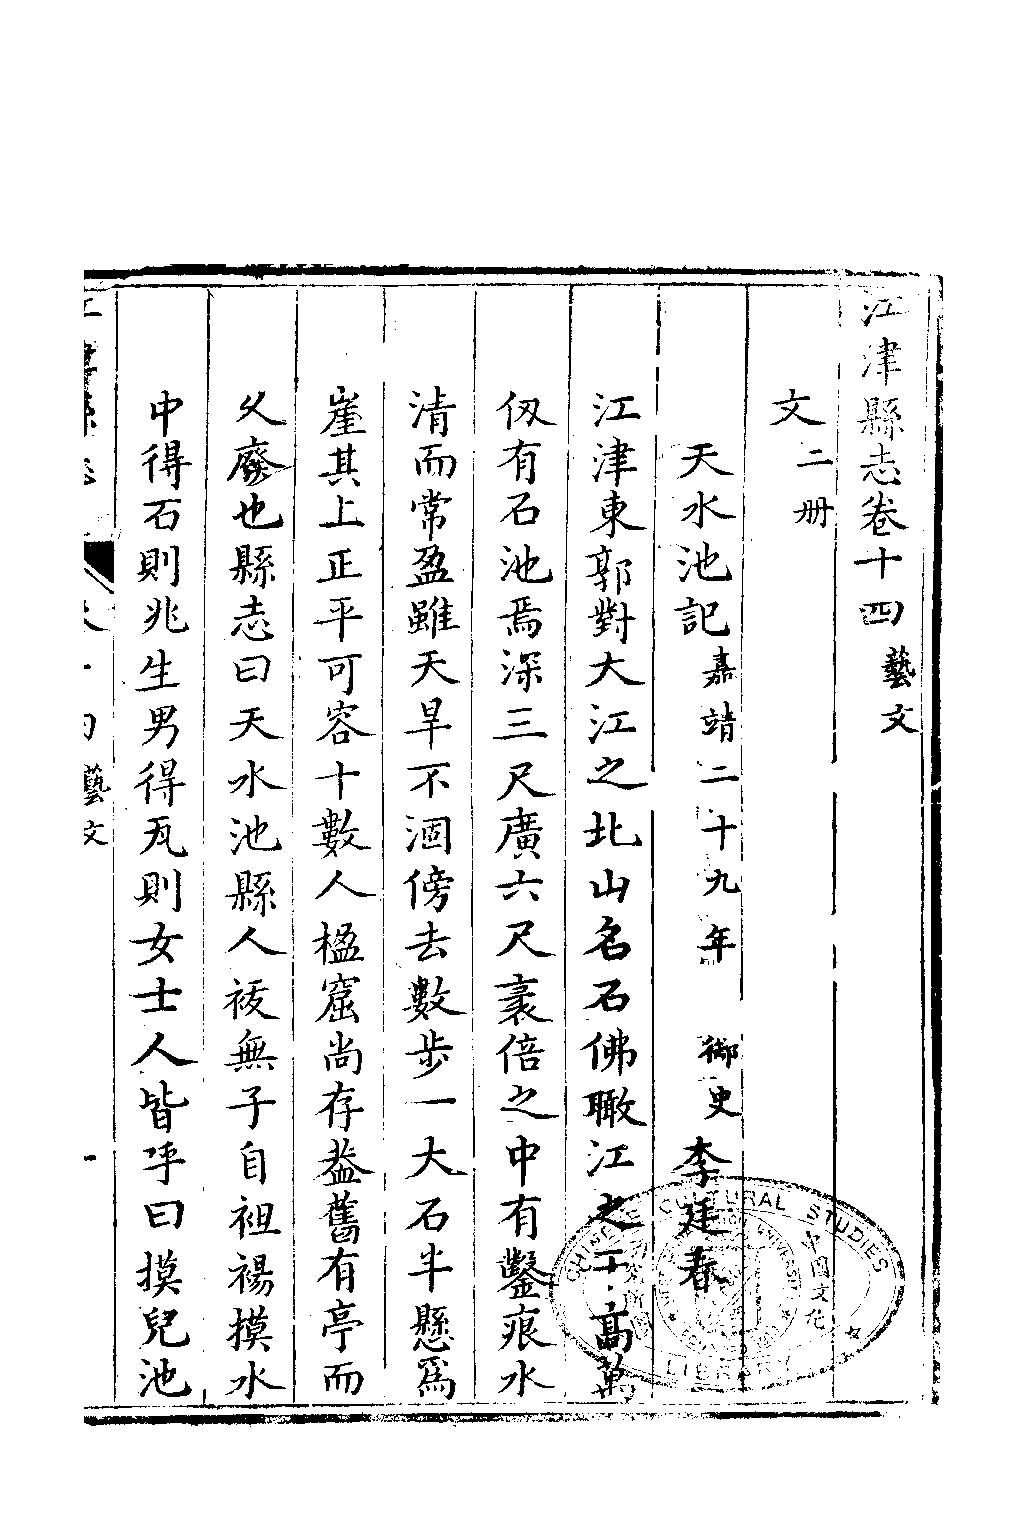 江津縣志卷十四 藝文
文二册
天水池記 嘉靖二十九年 御史 李廷春
江津東郭對大江之北山名石佛瞰江之干高萬
仭有石池焉深三尺廣六尺袤倍之中有鑿痕水
清而常盈雖天旱不涸傍去數步一大石半懸爲
崖其上正平可容十數人楹窟尚存葢舊有亭而
乆廢也縣志曰天水池縣人祓無子自袒裼摸水
中得石則兆生男得瓦則女士人皆呼曰摸兒池
藝文
一
CHINESE CULTURAL STUDIES
LIBRARY
中國文化